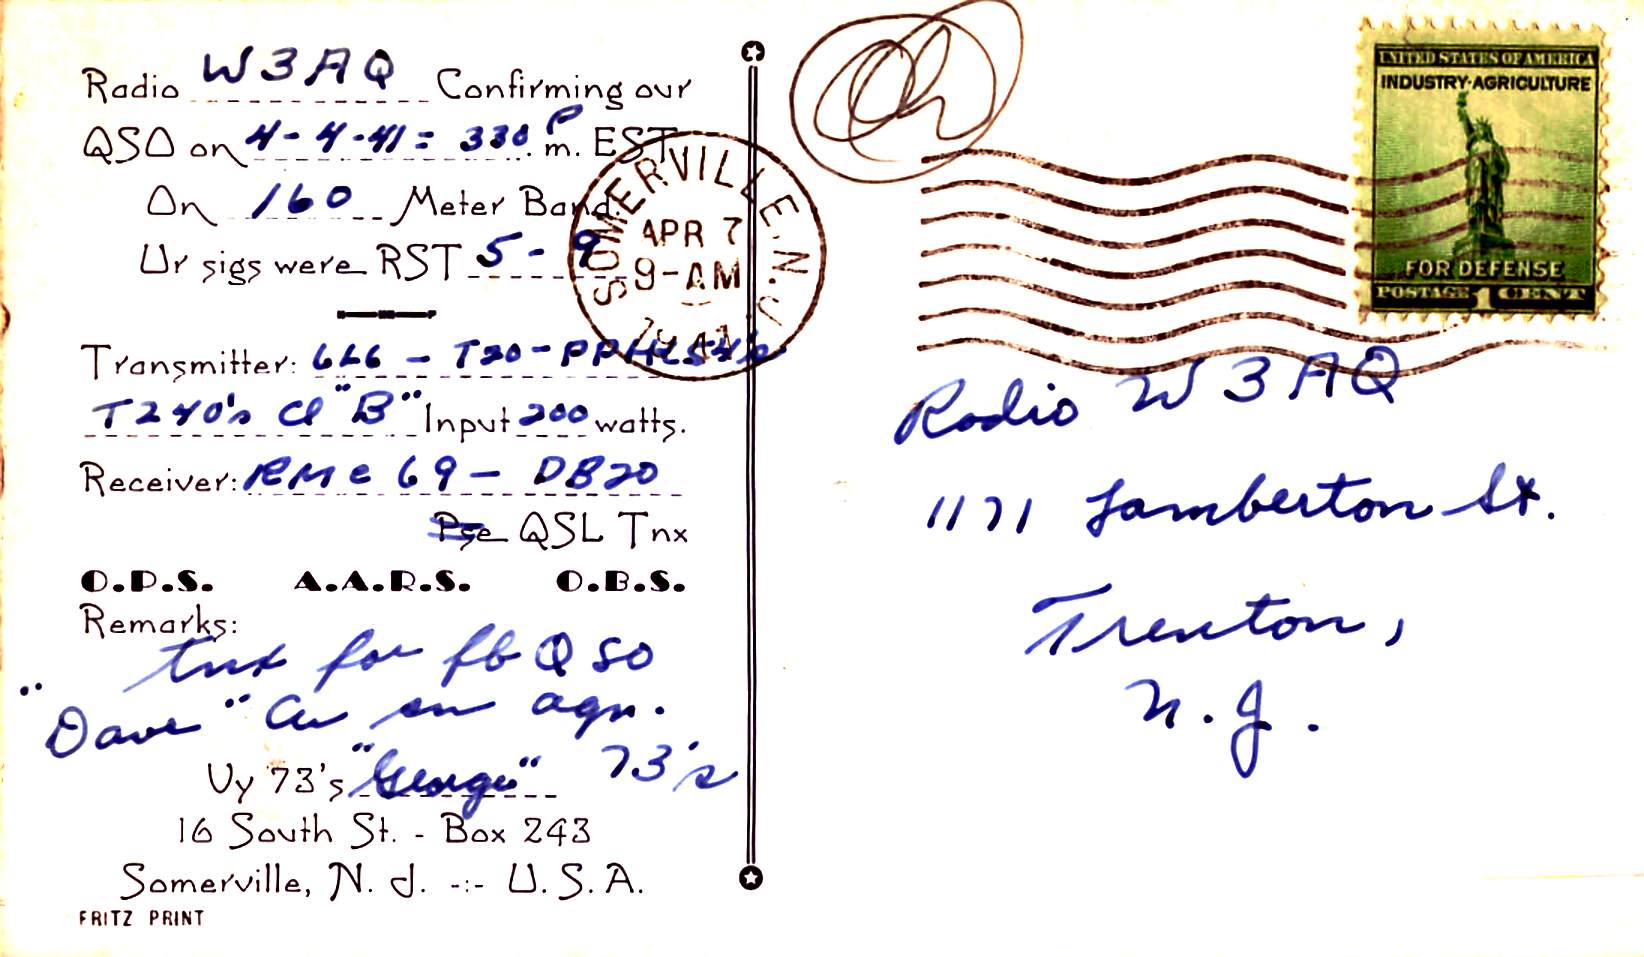 Radio W3AQ Confirming our
QSO on 4-4-41= 330 P. m. EST
On 160 Meter Band.
Ur sigs were RST 5-9
Transmitter: 6L6 - T20 - PP
T240's Cl "B" Input 200 watts.
Receiver: RME 69 - DB20
Pse QSL Tnx
O.P.S. A.A.R.S. O.B.S.
Remarks:
tnx for fb QSO
"Dave" Cu on agn.
Vy 73's "George" 73's
16 South St. - Box 243
Somerville, N. J. -:- U. S. A.
FRITZ PRINT
SOMERVILLE, N.J.
APR 7
9-AM
1941
UNITED STATES OF AMERICA
INDUSTRY·AGRICULTURE
FOR DEFENSE
POSTAGE 1 CENT
Radio W3AQ
1171 Lamberton St.
Trenton,
N.J.